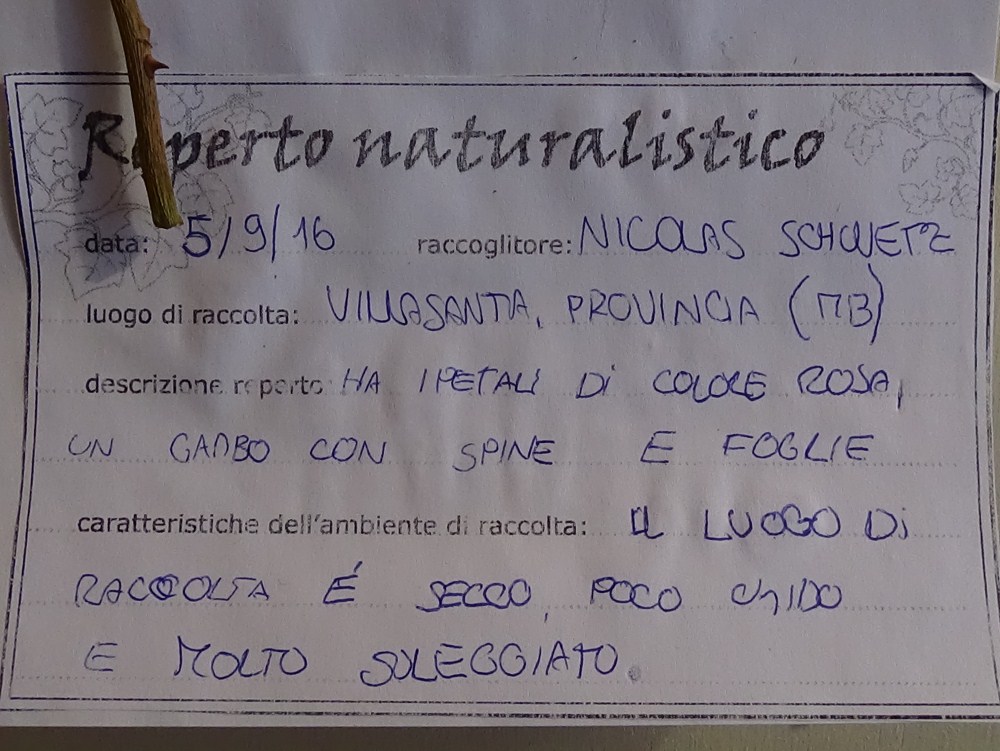 Reperto naturalistico
data: 5/9/16 raccoglitore: NICOLAS SCHWETZ
luogo di raccolta: VILLASANTA, PROVINCIA (MB)
descrizione reperto: HA I PETALI Di COLORE ROSA,
UN GAMBO CON SPINE E FOGLIE
caratteristiche dell'ambiente di raccolta: IL LUOGO Di
RACCOLTA É SECCO, POCO UMIDO
E MOLTO SOLEGGIATO.